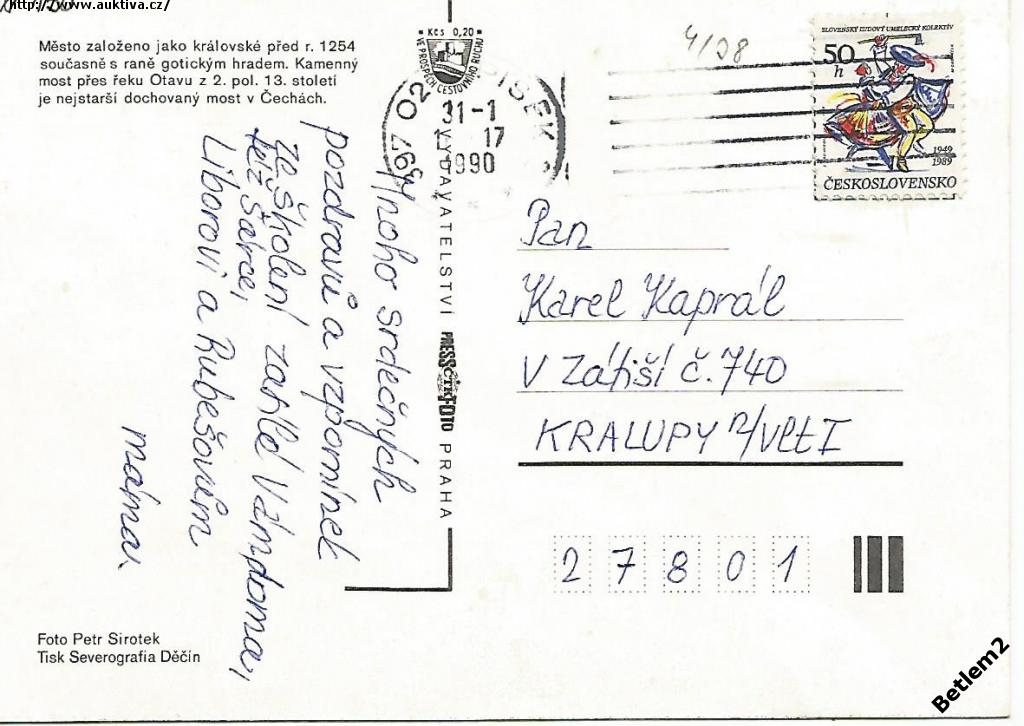 http://www.auktiva.cz/
Město založeno jako královské před r. 1254
současně s raně gotickým hradem. Kamenný
most přes řeku Otavu z 2. pol. 13. století
je nejstarší dochovaný most v Čechách.
Kčs 0,20
VE PROSPĚCH CESTOVNÍHO RUCHU
PÍSEK 02
31-1
17
1990
397
4/98
SLOVENSKÝ ĽUDOVÝ UMELECKÝ KOLEKTÍV
50
h
1949
1989
ČESKOSLOVENSKO
Mnoho srdečných
pozdravů a vzpomínek
ze školení zasílá Vám doma,
též Šárce,
Liborovi a Rubešovům
máma.
VYDAVATELSTVÍ PRESSFOTO PRAHA
ČTK
Pan
Karel Kaprál
V Zátiší č. 740
KRALUPY n/Vlt I
27801
Foto Petr Sirotek
Tisk Severografia Děčín
Betlem2